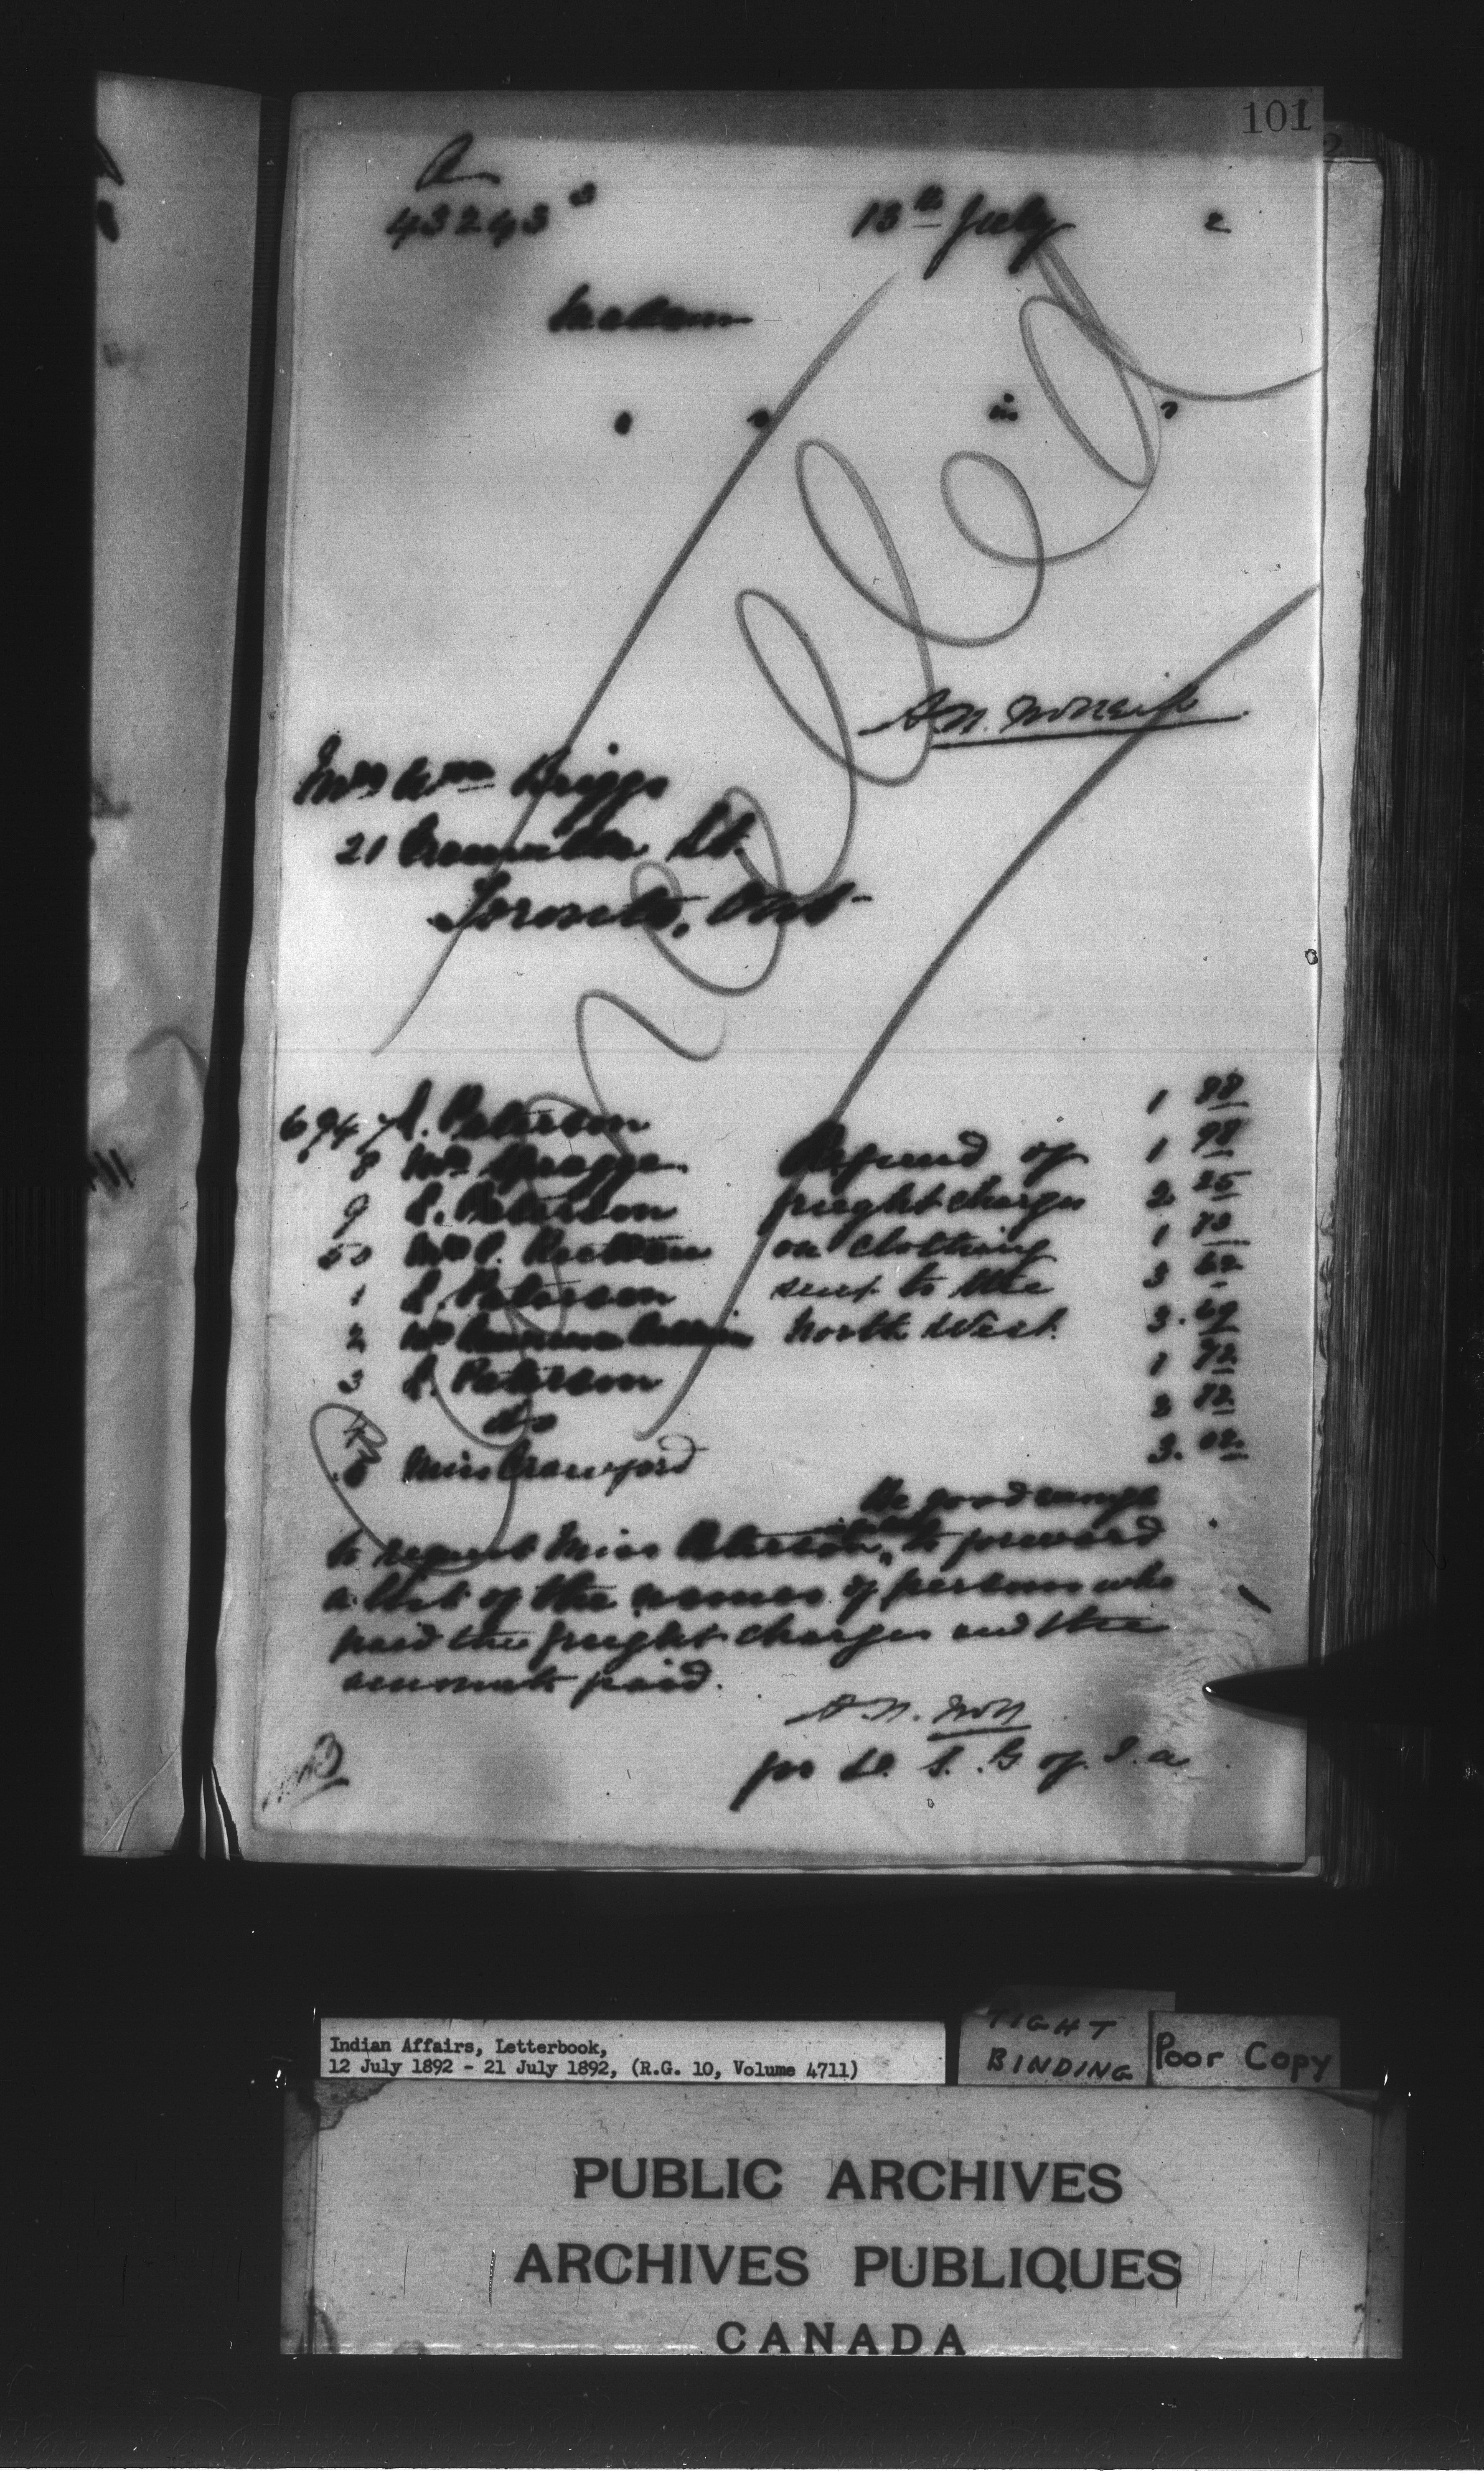 101
A
43243 3
13th July 2
Madam
in
Cancelled
A.N. McNeill
Mrs Wm Briggs
21 St.
Toronto, Ont
6947 L. Paterson 1 88
8 Mrs Spragge Refund of 1 98
9 L. Paterson freight charges 2 25
50 Mrs on clothing 1 73
1 L. Paterson sent to the 3 62
2 Mrs North West. 3.69
3 L. Paterson 1 72
4 do 82
5 Miss Crawford 3.02
Be good enough
to request Miss Paterson to forward
a list of the names of persons who
paid the freight charges and the
amounts paid.
A.N. McN
for D. S. G of I. a
Indian Affairs, Letterbook,
12 July 1892 - 21 July 1892, (R.G. 10, Volume 4711)
TIGHT
BINDING
Poor Copy
PUBLIC ARCHIVES
ARCHIVES PUBLIQUES
CANADA